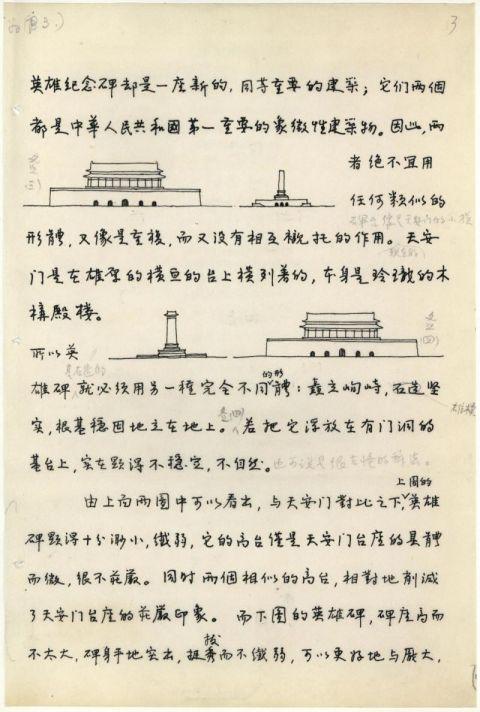 3
英雄纪念碑却是一座新的,同等重要的建築;它们两個
都是中華人民共和國第一重要的象徵性建築物。因此,兩
者绝不宜用
任何類似的
形體,又像是重複,而又没有相互襯托的作用。天安
门是在雄厚的横亘的台上横列着的,本身是玲瓏的木
構殿楼。
所以英
雄碑就必须用另一種完全不同的形體:矗立峋峙,石造坚
实,根基穩固地立在地上。若把它浮放在有门洞的
基台上,实在顯得不穩定,不自然。
由上面两图中可以看出,与天安门對比之下,上图的英雄
碑顯得十分渺小,纖弱,它的高台僅是天安门台座的具體
而微,很不莊嚴。同时两個相似的高台,相對地削減
了天安门台座的莊嚴印象。而下图的英雄碑,碑座高而
不太大,碑身平地突出,挺拔而不纖弱,可以更好地与龐大,